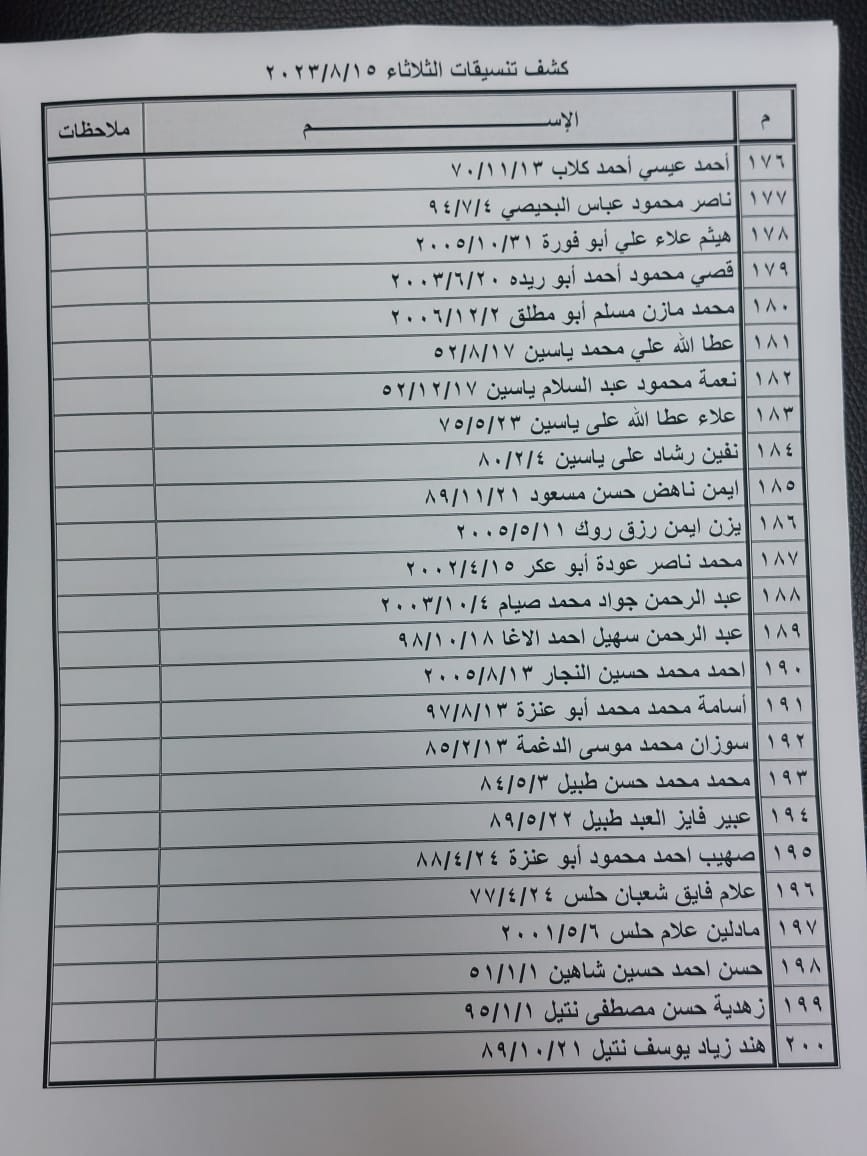 كشف تنسيقات الثلاثاء ٢٠٢٣/٨/١٥
م الإســـــــــــــــم ملاحظات
١٧٦ أحمد عيسي أحمد كلاب ٧٠/١١/١٣
١٧٧ ناصر محمود عباس البحيصي ٩٤/٧/٤
١٧٨ هيثم علاء علي أبو فورة ٢٠٠٥/١٠/٣١
١٧٩ قصي محمود أحمد أبو ريده ٢٠٠٣/٦/٢٠
١٨٠ محمد مازن مسلم أبو مطلق ٢٠٠٦/١٢/٢
١٨١ عطا الله علي محمد ياسين ٥٢/٨/١٧
١٨٢ نعمة محمود عبد السلام ياسين ٥٢/١٢/١٧
١٨٣ علاء عطا الله على ياسين ٧٥/٥/٢٣
١٨٤ نفين رشاد على ياسين ٨٠/٢/٤
١٨٥ ايمن ناهض حسن مسعود ٨٩/١١/٢١
١٨٦ يزن ايمن رزق روك ٢٠٠٥/٥/١١
١٨٧ محمد ناصر عودة أبو عكر ٢٠٠٢/٤/١٥
١٨٨ عبد الرحمن جواد محمد صيام ٢٠٠٣/١٠/٤
١٨٩ عبد الرحمن سهيل احمد الاغا ٩٨/١٠/١٨
١٩٠ احمد محمد حسين النجار ٢٠٠٥/٨/١٣
١٩١ أسامة محمد محمد أبو عنزة ٩٧/٨/١٣
١٩٢ سوزان محمد موسى الدغمة ٨٥/٢/١٣
١٩٣ محمد محمد حسن طبيل ٨٤/٥/٣
١٩٤ عبير فايز العبد طبيل ٨٩/٥/٢٢
١٩٥ صهيب احمد محمود أبو عنزة ٨٨/٤/٢٤
١٩٦ علام فايق شعبان حلس ٧٧/٤/٢٤
١٩٧ مادلين علام حلس ٢٠٠١/٥/٦
١٩٨ حسن احمد حسين شاهين ٥١/١/١
١٩٩ زهدية حسن مصطفى نتيل ٩٥/١/١
٢٠٠ هند زياد يوسف نتيل ٨٩/١٠/٢١